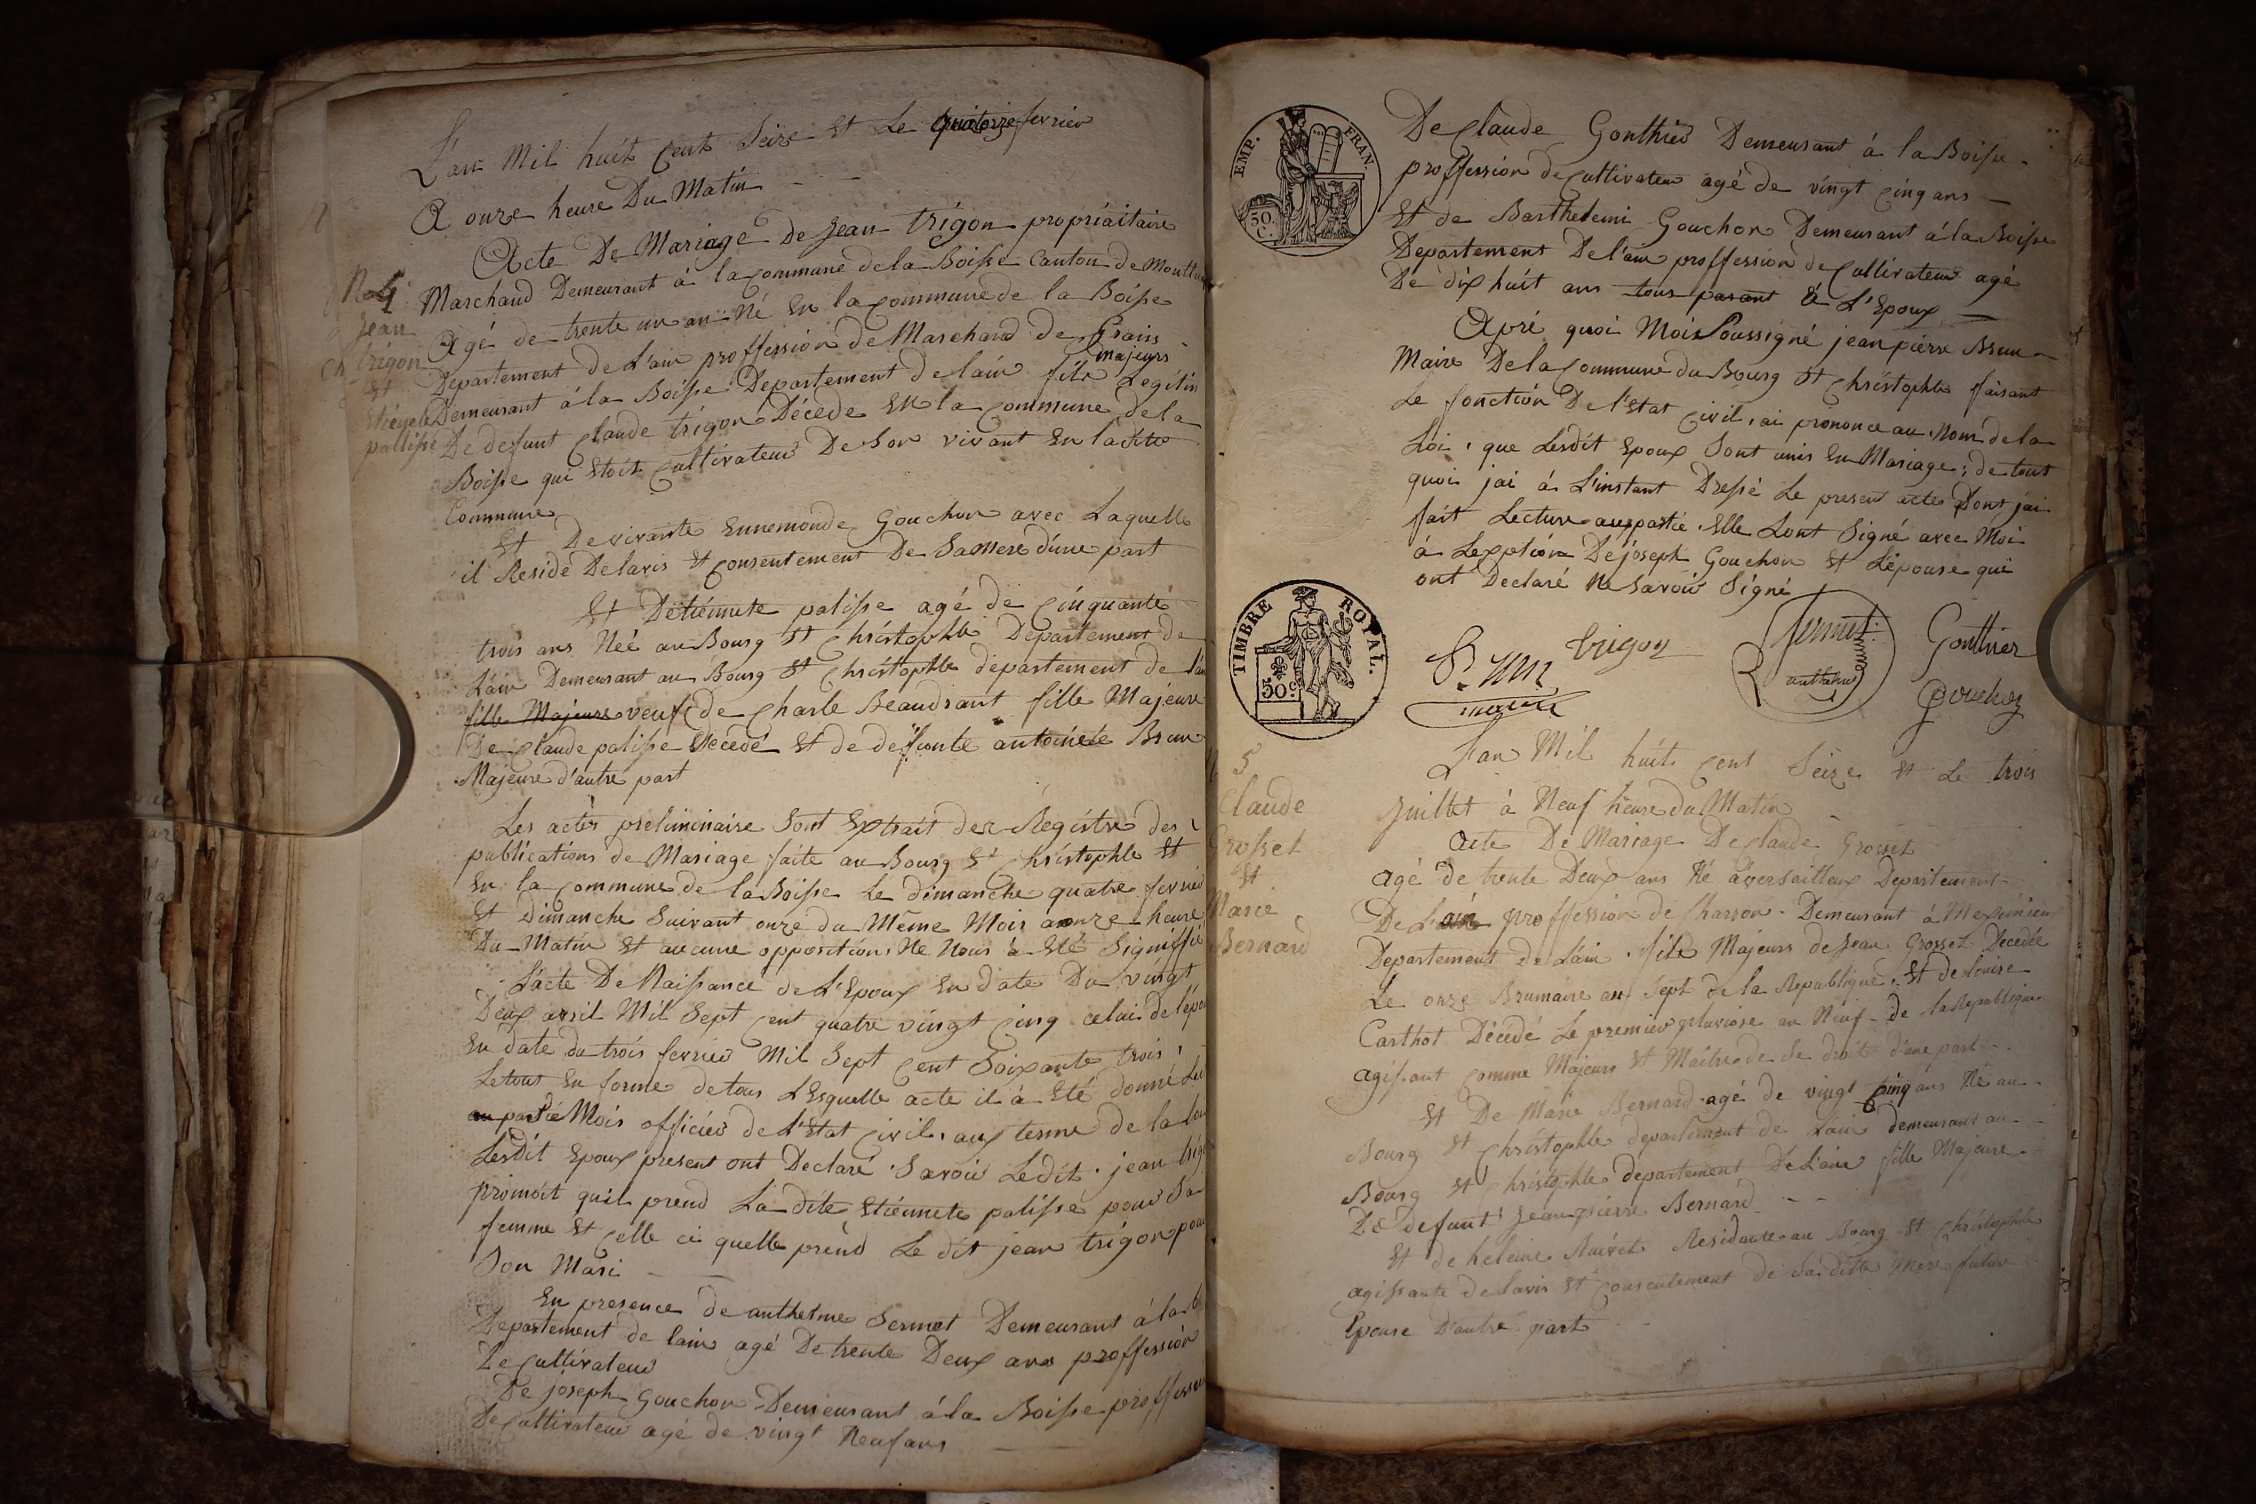 L'an Mil huit Cent Seize Et Le quatorze fevrier
A onze heure Du Matin
Acte De Mariage De Jean trigon propriaitaire
Marchand Demeurant à la Commune de la Boisse Canton de Montluel
Agé de trente un an Né En la Commune de la Boisse
Departement de L'ain proffession de Marchand de Grains
majeurs
Demeurant à la Boisse Departement de lain fils Legitim
De defunt Claude trigon Décede En la Commune de la
Boisse qui Etoit Cultivateur De Son vivant En la dite
Commune
Et De vivante Ennemonde Gouchon avec Laquelle
il Reside De lavis Et Consentement De Sa Mere d'une part
Et D'étiennete palisse agé de Cinquante
trois ans Neé au Bourg St Christophle Departement de
L'ain Demeurant au Bourg St Christophle departement de l'ain
fille Majeure veuf de Charle Beaudrant fille Majeure
De Claude palisse Decedé Et de defunte antoinete Brun
Majeure d'autre part
Les actes preliminaire Sont Extrait des Registre des
publications de Mariage faite au Bourg St Christophle Et
En la Commune de la Boisse Le dimanche quatre fevrier
Et Dimanche Suivant onze du Même Mois a onze heure
Du Matin Et aucune opposition Ne Nous à Eté Signiffié
L'acte De Naissance de L'Epoux En date Du vingt
Deux avril Mil Sept Cent quatre vingt Cinq celui de l'épou
En date du trois fevrier Mil Sept Cent Soixante trois
Le tout En forme de tous L'Esquelle acte il à Eté donné Lec
au partié Mois officier de L'Etat Civil, aux terme de la loi
Lesdit Epoux present ont Declaré Savoir Ledit jean trigo
promoit quil prend La dite Etiennete palisse pour Sa
femme Et Celle ci quelle prend Le dit jean trigon pour
Son Mari
En presence de anthelme Sermet Demeurant à la B
Departement de lain agé De trente Deux ans proffession
De Cultivateur
De joseph Gouchon Demeurant à la Boisse proffession
De Cultivateur agé de vingt Neuf ans
No 4
Jean
trigon
Et
Etienete
pallisse
EMP. FRAN.
50.
C.
De Claude Gonthier Demeurant à la Boisse
proffession de Cultivateur agé de vingt Cinq ans
Et de Barthelemi Gouchon Demeurant à la Boisse
Departement De l'ain proffession de Cultivateur agé
De dix huit ans tous parant à L'Epoux
Apré quoi Moi Soussigné jean pierre Brun
Maire De la Commune du Bourg St Christophle faisant
Le fonction De l'Etat Civil, ai prononce au Nom de la
Loi, que Lesdit Epoux Sont unis En Mariage; de tout
quoi jai à L'instant Dressé Le present acte Dont jai
fait Lecture aux partié Elle Lont Signé avec Moi
à Lexption De joseph Gouchon Et L'épouse qui
ont Declaré Ne Savoir Signé
TIMBRE ROYAL.
50c.
trigon
Sermet
anthelme
Gonthier
Gouchon
maire
L'an Mil huit Cent Seize Et Le trois
Juillet à Neuf heure du Matin
acte De Mariage De Claude Grosset
agé de trente Deux ans Né à versailleux Departement
De L'ain proffession de Charron Demeurant à Meximieux
Departement de L'ain fils Majeurs de Jean Grosset Decedée
Le onze Brumaire an Sept de la Republique, Et de louise
Carthot Décédé Le premier pluviose an Neuf de la Republique
agissant Comme Majeurs Et Maître de Se droit d'une part
Et De Marie Bernard agé de vingt Cinq ans Né au
Bourg St Christophle departement de Lain demeurant au
Bourg St Christophle departement De L'ain fille Majeure
De defunt Jean pierre Bernard
Et de heleine Residante au Bourg St Christophle
agissante de lavis Et Consentement de Sa ditte Mere future
Epouse D'autre part
5
Claude
Grosset
Et
Marie
Bernard